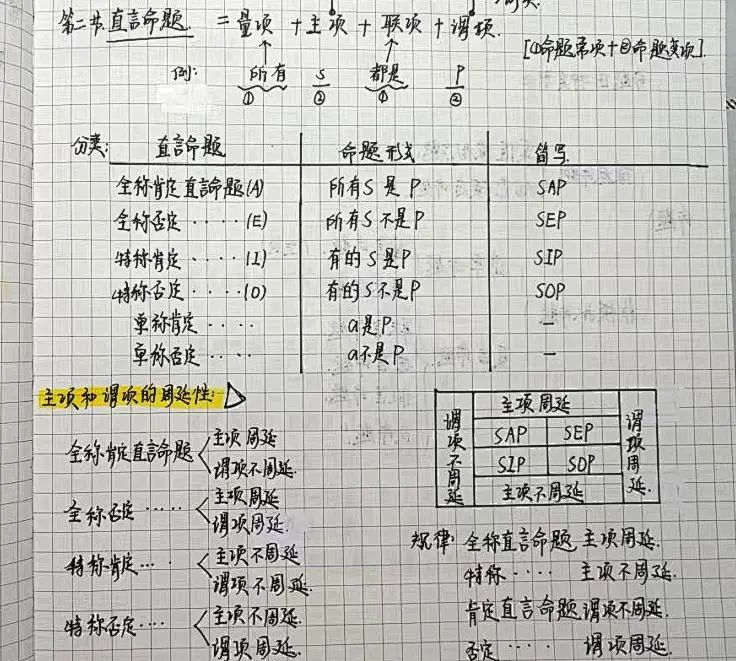 第二节.直言命题. = 量项 + 主项 + 联项 + 谓项.
[①命题常项+②命题变项].
例: 所有 S 都是 P
① ② ① ②
分类: 直言命题 命题形式 简写.
全称肯定直言命题(A) 所有S是P SAP
全称否定 ····· (E) 所有S不是P SEP
特称肯定 ····· (I) 有的S是P SIP
特称否定 ····· (O) 有的S不是P SOP
单称肯定 ···· a是P —
单称否定 ···· a不是P —
主项和谓项的周延性:
全称肯定直言命题 主项周延
谓项不周延.
全称否定 ······ 主项周延
谓项周延.
特称肯定 ··· 主项不周延
谓项不周延.
特称否定 ···· 主项不周延.
谓项周延.
主项周延
谓项不周延 SAP SEP 谓项周延.
SIP SOP
主项不周延
规律: 全称直言命题 主项周延.
特称 ···· 主项不周延.
肯定直言命题 谓项不周延.
否定 ···· 谓项周延.